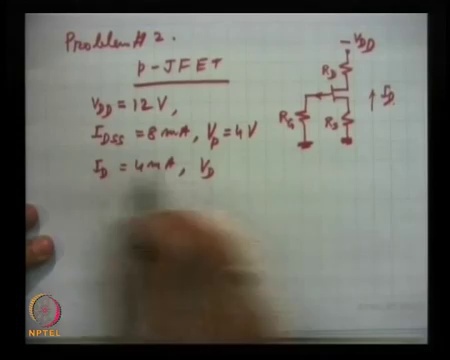 Problem # 2.
p-JFET
V_DD = 12 V,
I_DSS = 8 mA, V_p = 4 V
I_D = 4 mA, V_D
-V_DD
R_D
I_D
R_G
R_S
NPTEL